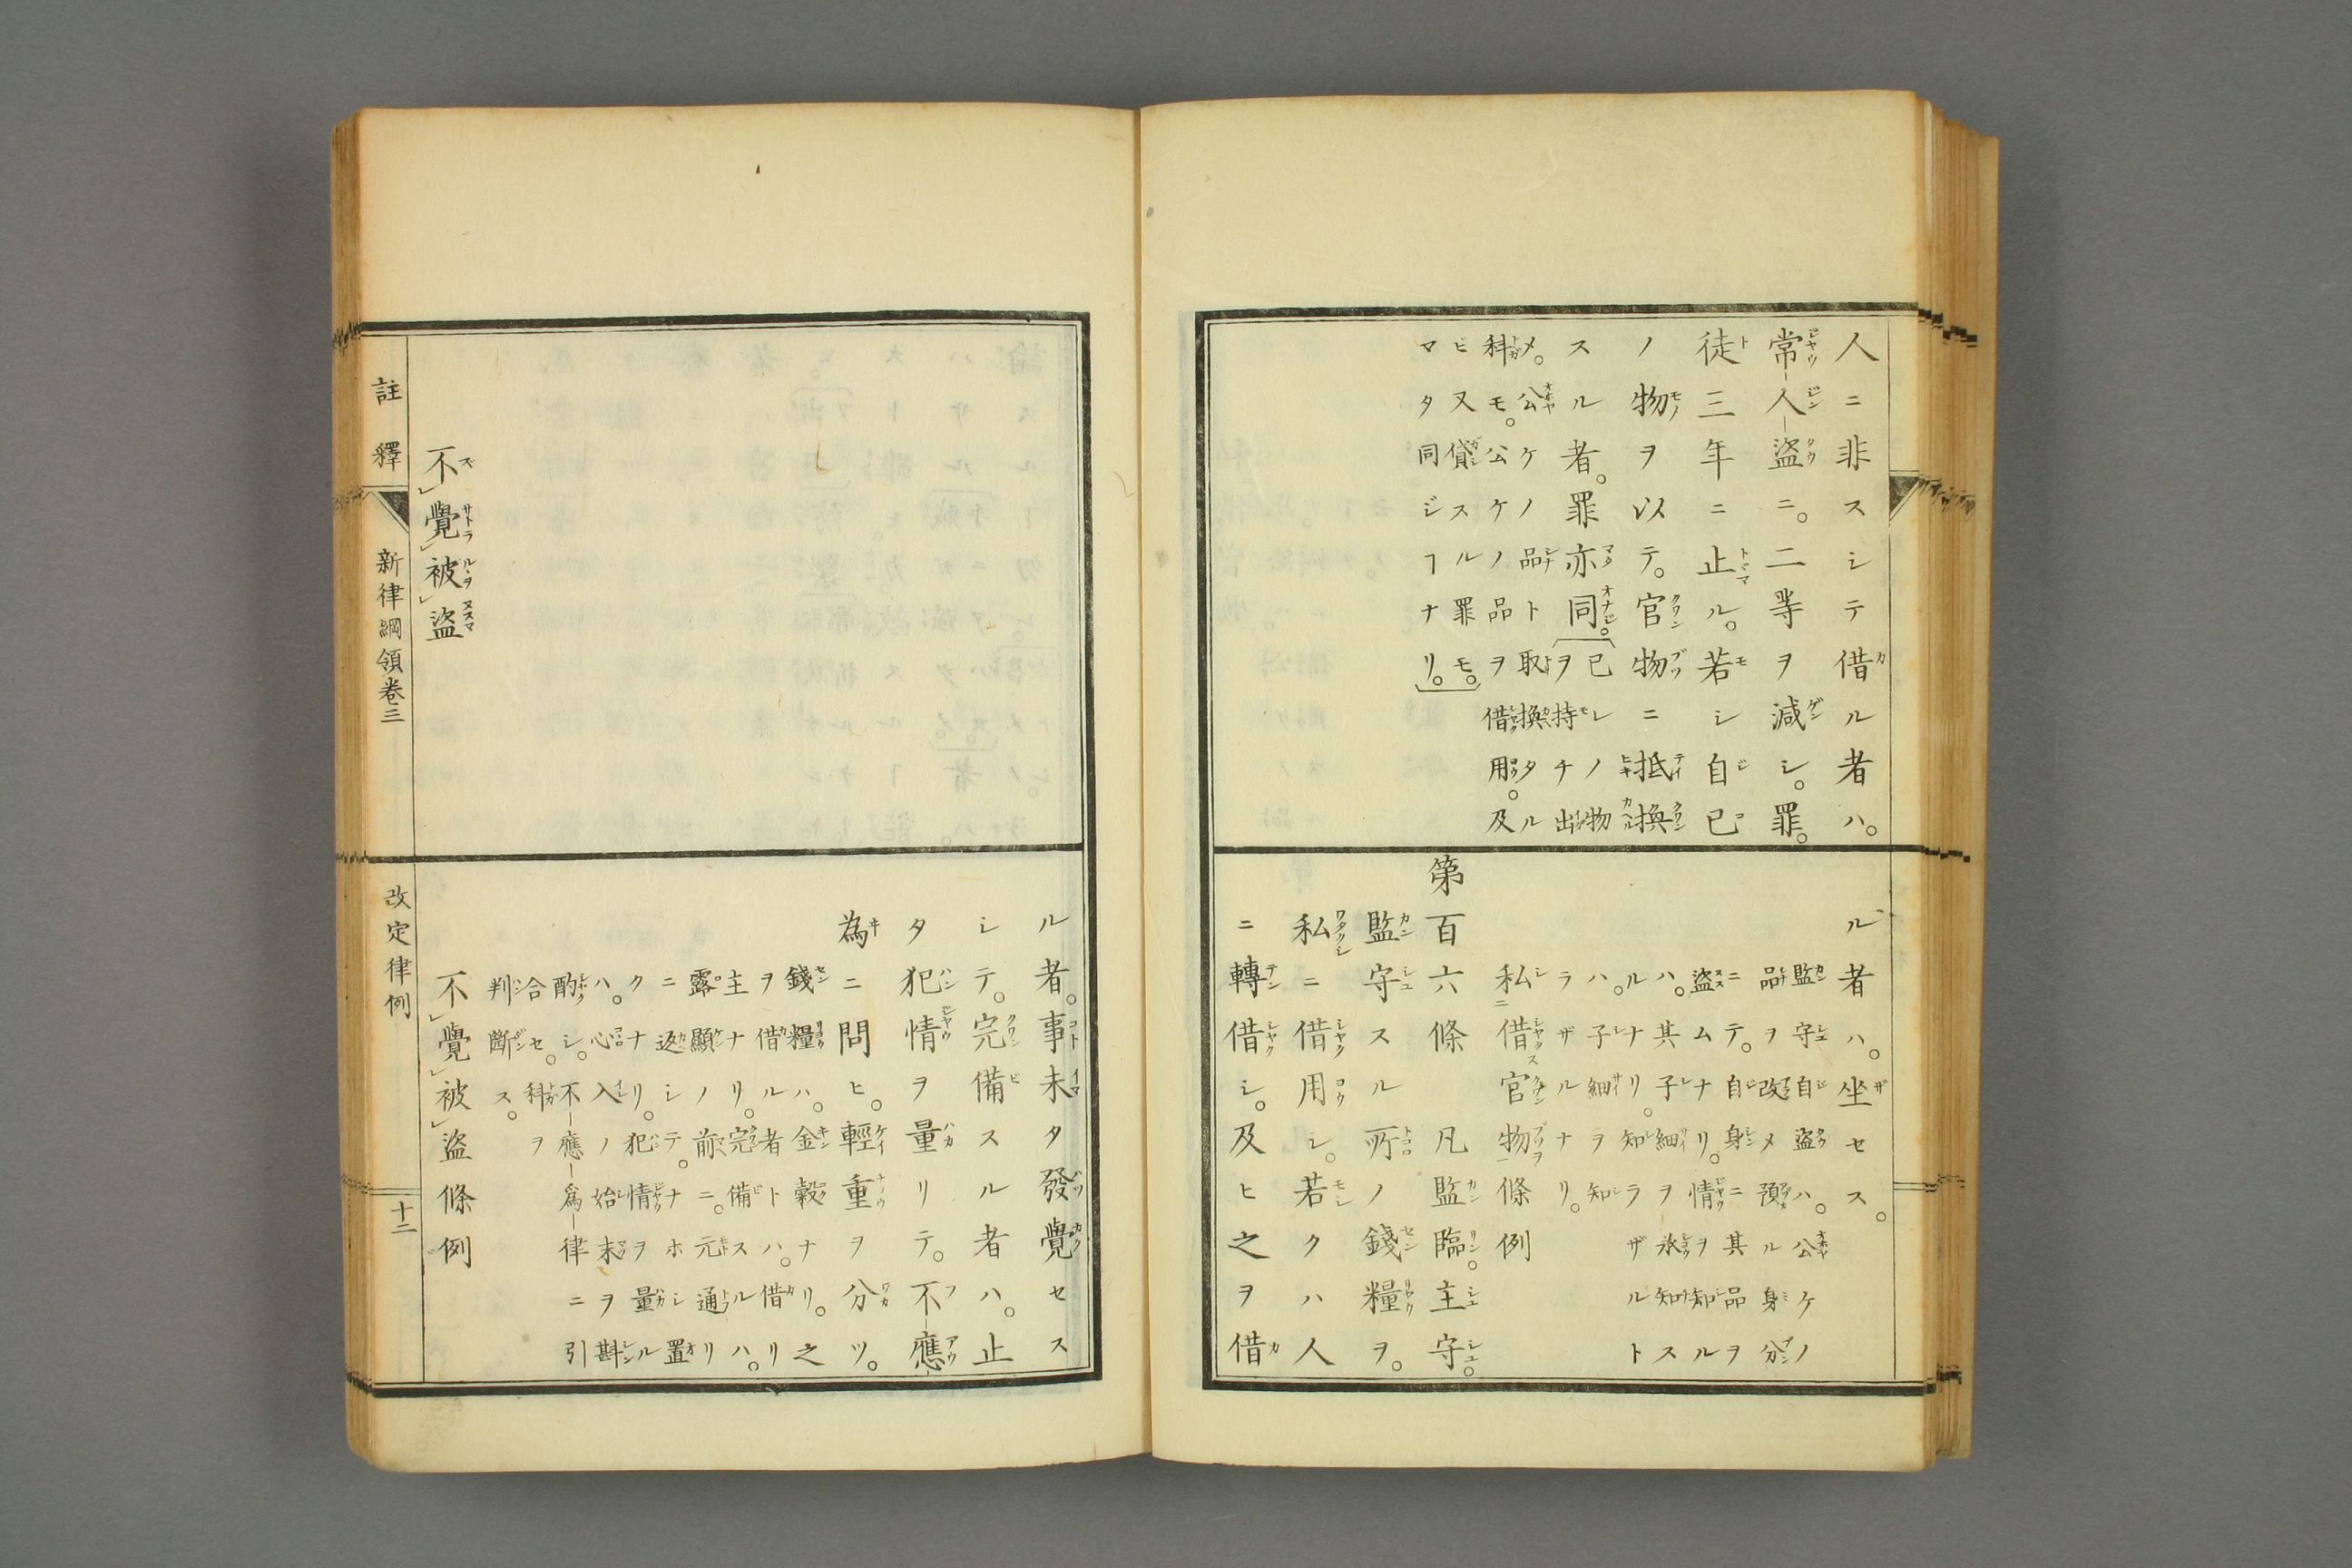 人ニ非スシテ借ル者ハ。
常人盜ニ。二等ヲ減シ。罪。
徒三年ニ止ル。若シ自己
ノ物ヲ以テ。官物ニ抵換
スル者。罪亦同。
已レノ物
ヲ持チ出
メ。公ケノ品ト取換タル
科モ。公ケノ品ヲ借用。及
ビ又貸スル罪モ。
マタ同ジヿナリ。
ル者ハ。坐セス。
監守自盜ハ。公ケノ
品ヲ改メ預ル身分
ニテ。自身ニ其品ヲ
盜ムナリ。情ヲ知ル
ハ。其子細ヲ承知ス
ルナリ。知ラザルト
ハ。子細ヲ知
ラザルナリ。
私借官物條例
第百六條 凡監臨。主守。
監守スル所ノ錢糧ヲ。
私ニ借用シ。若クハ人
ニ轉借シ。及ヒ之ヲ借
不覺被盜
ル者。事未タ發覺セス
シテ。完備スル者ハ。止
タ犯情ヲ量リテ。不應
為ニ問ヒ。輕重ヲ分ツ。
錢糧ハ。金穀ナリ。之
ヲ借ル者トハ。借リ
主ナリ。完備スルハ。
露顯ノ前ニ。元通リ
ニ返シテ。ナホシ置
クナリ。犯情ヲ量ル
ハ。心入ノ始末ヲ斟
酌シ。不應爲律ニ引
合セ。科ヲ
判斷ス。
不覺被盜條例
註釋 新律綱領卷三 改定律例 十二